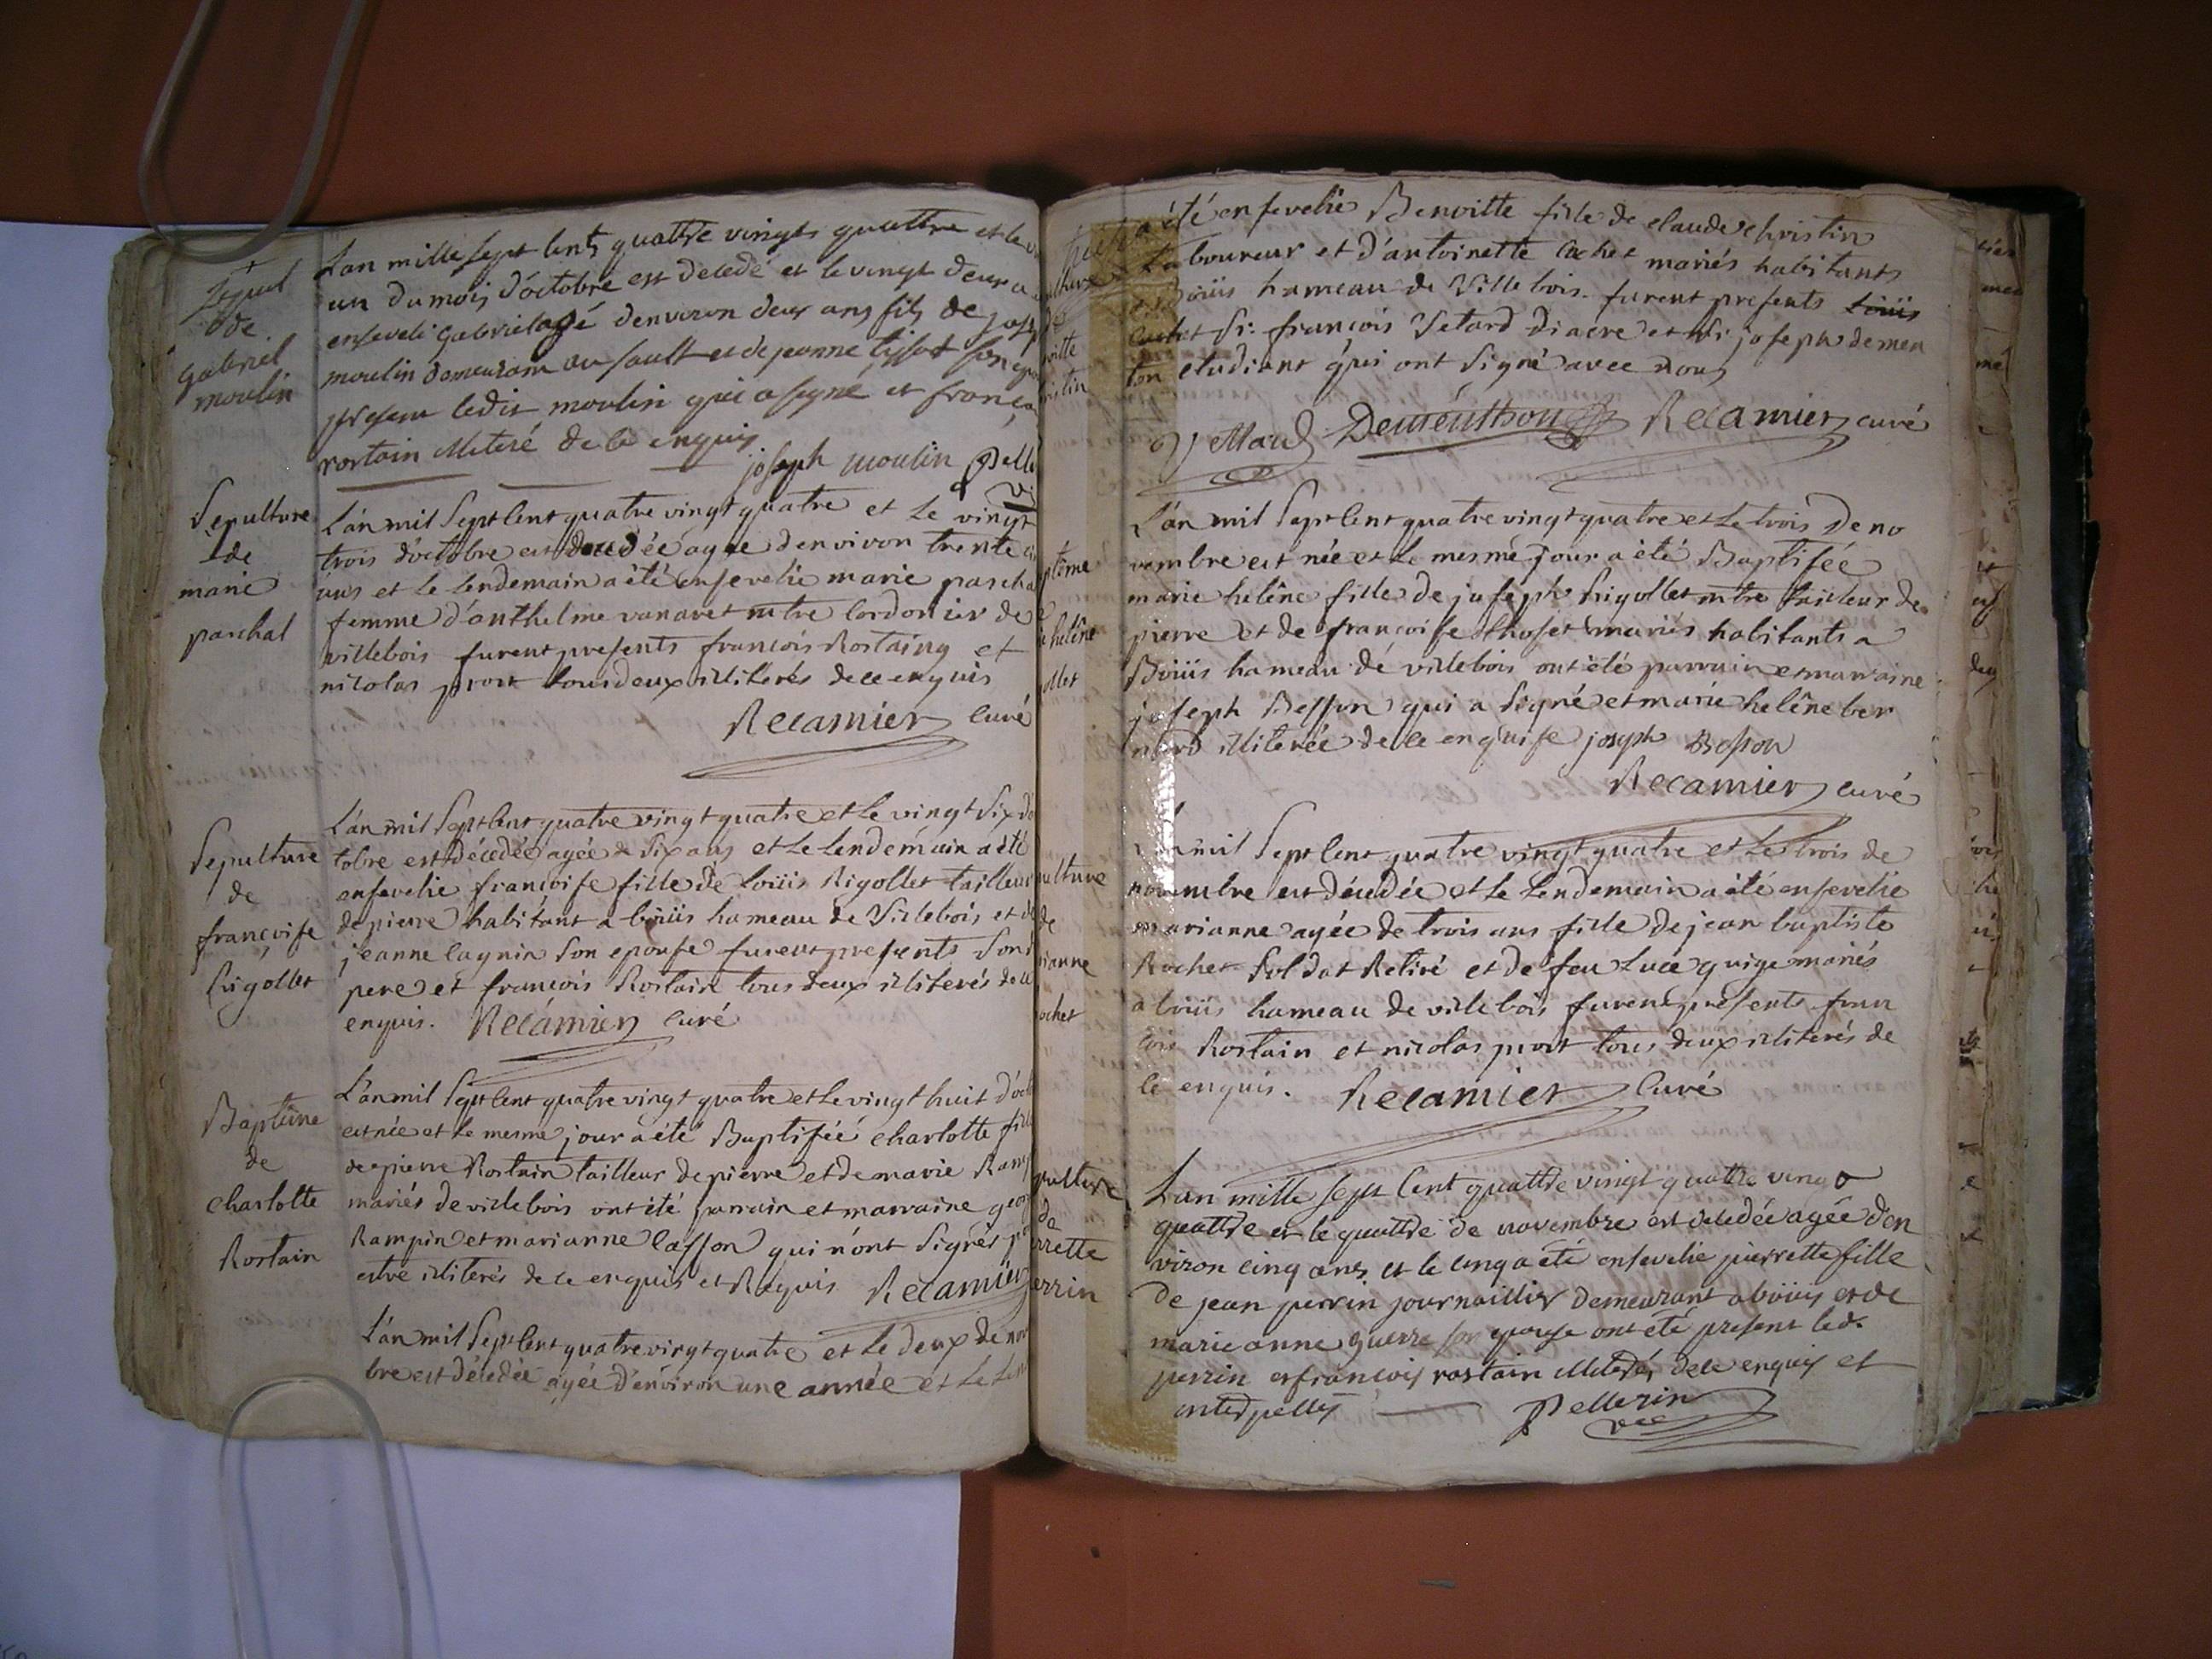 Sepul
de
gabriel
moulin
Lan mille sept cents quattre vingts quattre et le
un du mois d'octobre est decedé et le vingt deux a
enseveli gabriel agé d'environ deux ans fils de jose
moulin demeurant au sault et de jeanne tissot son ep
présent ledit moulin qui a signé et franço
rostain illiteré de ce enquis
joseph moulin Pelle
Sepulture
de
marie
paschal
L'an mil sept cent quatre vingt quatre et le vingt
trois d'octobre est decedée agée d'environ trente
ans et le lendemain a été ensevelie marie pascha
femme d'anthelme vanaret mtre cordonier de
villebois furent presents francois Rostaing et
nicolas prost tous deux illiterés de ce enquis
Recamier curé
Sepulture
de
francoise
Rigollet
L'an mil sept cent quatre vingt quatre et le vingt six d'o
tobre est décedée agée de six ans et le lendemain a été
ensevelie francoise fille de louis Rigollet tailleur
de pierre habitant a bouis hameau de Villebois et de
jeanne cagnin son epouse furent presents son
pere et francois Rostain tous deux illiterés de ce
enquis. Recamier curé
Baptême
de
charlotte
Rostain
L'an mil sept cent quatre vingt quatre et le vingt huit d'oct
est née et le mesme jour a été Baptisée charlotte fille
de pierre Rostain tailleur de pierre et de marie Ramp
mariés de villebois ont été parrain et marraine geo
Rampin et marianne casson qui n'ont signés p
estre illiterés de ce enquis et Requis Recamier
L'an mil sept cent quatre vingt quatre et le deux de nov
bre est décedée agée d'environ une année et le len
a été ensevelie Benoitte fille de claude christin
Laboureur et d'antoinette cachet mariés habitants
a Bouis hameau de Villebois. furent presents Louis
cachet Sr. francois Vetard diacre et Sr joseph demen
ton etudiant qui ont signé avec nous
Dementhon Recamier curé
ptême
helène
ollet
L'an mil sept cent quatre vingt quatre et le trois de no
vembre est née et le mesme jour a été Baptisée
marie helêne fille de joseph Rigollet mtre tailleur de
pierre et de francoise thoset mariés habitants a
Bouis hameau de villebois ont été parrain et marraine
joseph Besson qui a signé et marie helêne ber
nard illiterée de ce enquise joseph Besson
Recamier curé
ulture
de
rianne
ochet
L'an mil sept cent quatre vingt quatre et le trois de
novembre est décedée et le lendemain a été ensevelie
marianne agée de trois ans fille de jean baptiste
Rochet soldat Retiré et de feu Luce guige mariés
a bouis hameau de villebois furent presents fran
cois Rostain et nicolas prost tous deux illiterés de
ce enquis. Recamier curé
pulture
de
rrette
errin
Lan mille sept cent quattre vingt quattre vingt
quattre et le quattre de novembre est decedée agée d'en
viron cinq ans et le cinq a été ensevelie pierrette fille
de jean perrin journaillier demeurant a bouis et de
marie anne guerre son epouse ont eté présent led.
perrin et francois rostain illiterés de ce enquis et
interpellés Pellerin
vic